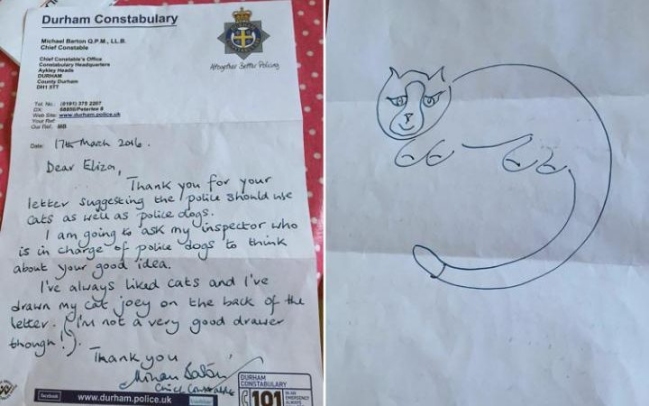 Durham Constabulary
Michael Barton Q.P.M., LL.B.
Chief Constable
Chief Constable's Office
Constabulary Headquarters
Aykley Heads
DURHAM
County Durham
DH1 5TT
Altogether Better Policing
Tel. No: (0191) 375 2207
DX: 68850/Peterlee 8
Web Site: www.durham.police.uk
Your Ref:
Our Ref: MB
Date: 17th March 2016.
Dear Eliza,
Thank you for your
letter suggesting the police should use
cats as well as police dogs.
I am going to ask my inspector who
is in charge of police dogs to think
about your good idea.
I've always liked cats and I've
drawn my cat joey on the back of the
letter. (I'm not a very good drawer
though!).
Thank you
Chief Constable
facebook
www.durham.police.uk
DURHAM
CONSTABULARY
101